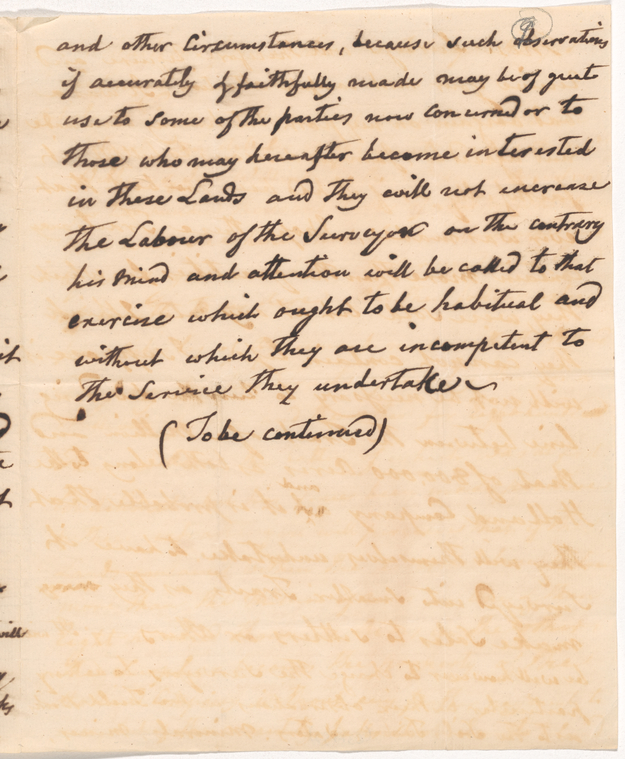 and other Circumstances, because such observations
if accurately & faithfully made may be of great
use to some of the parties now concerned or to
those who may hereafter become interested
in these Lands and they will not increase
the Labour of the Surveyor on the contrary
his mind and attention will be called to that
exercise which ought to be habitual and
without which they are incompetent to
the Service they undertake
(To be continued)